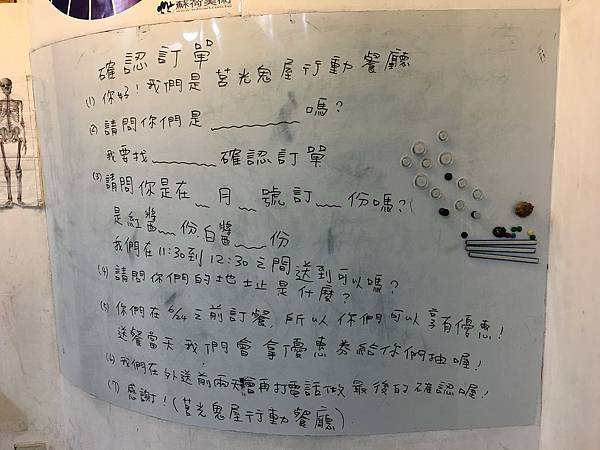 蘇荷美術
確認訂單
(1) 你好!我們是莒光鬼屋行動餐廳
(2) 請問你們是______嗎?
我要找______確認訂單
(3) 請問你是在__月__號訂__份嗎?
是紅醬__份,白醬__份
我們在11:30到12:30之間送到可以嗎?
(4) 請問你們的地址是什麼?
(5) 你們在6/24之前訂餐,所以你們可以享有優惠!
送餐當天我們會拿優惠券給你們抽喔!
(6) 我們在外送前兩天會再打電話做最後的確認喔!
(7) 感謝!(莒光鬼屋行動餐廳)